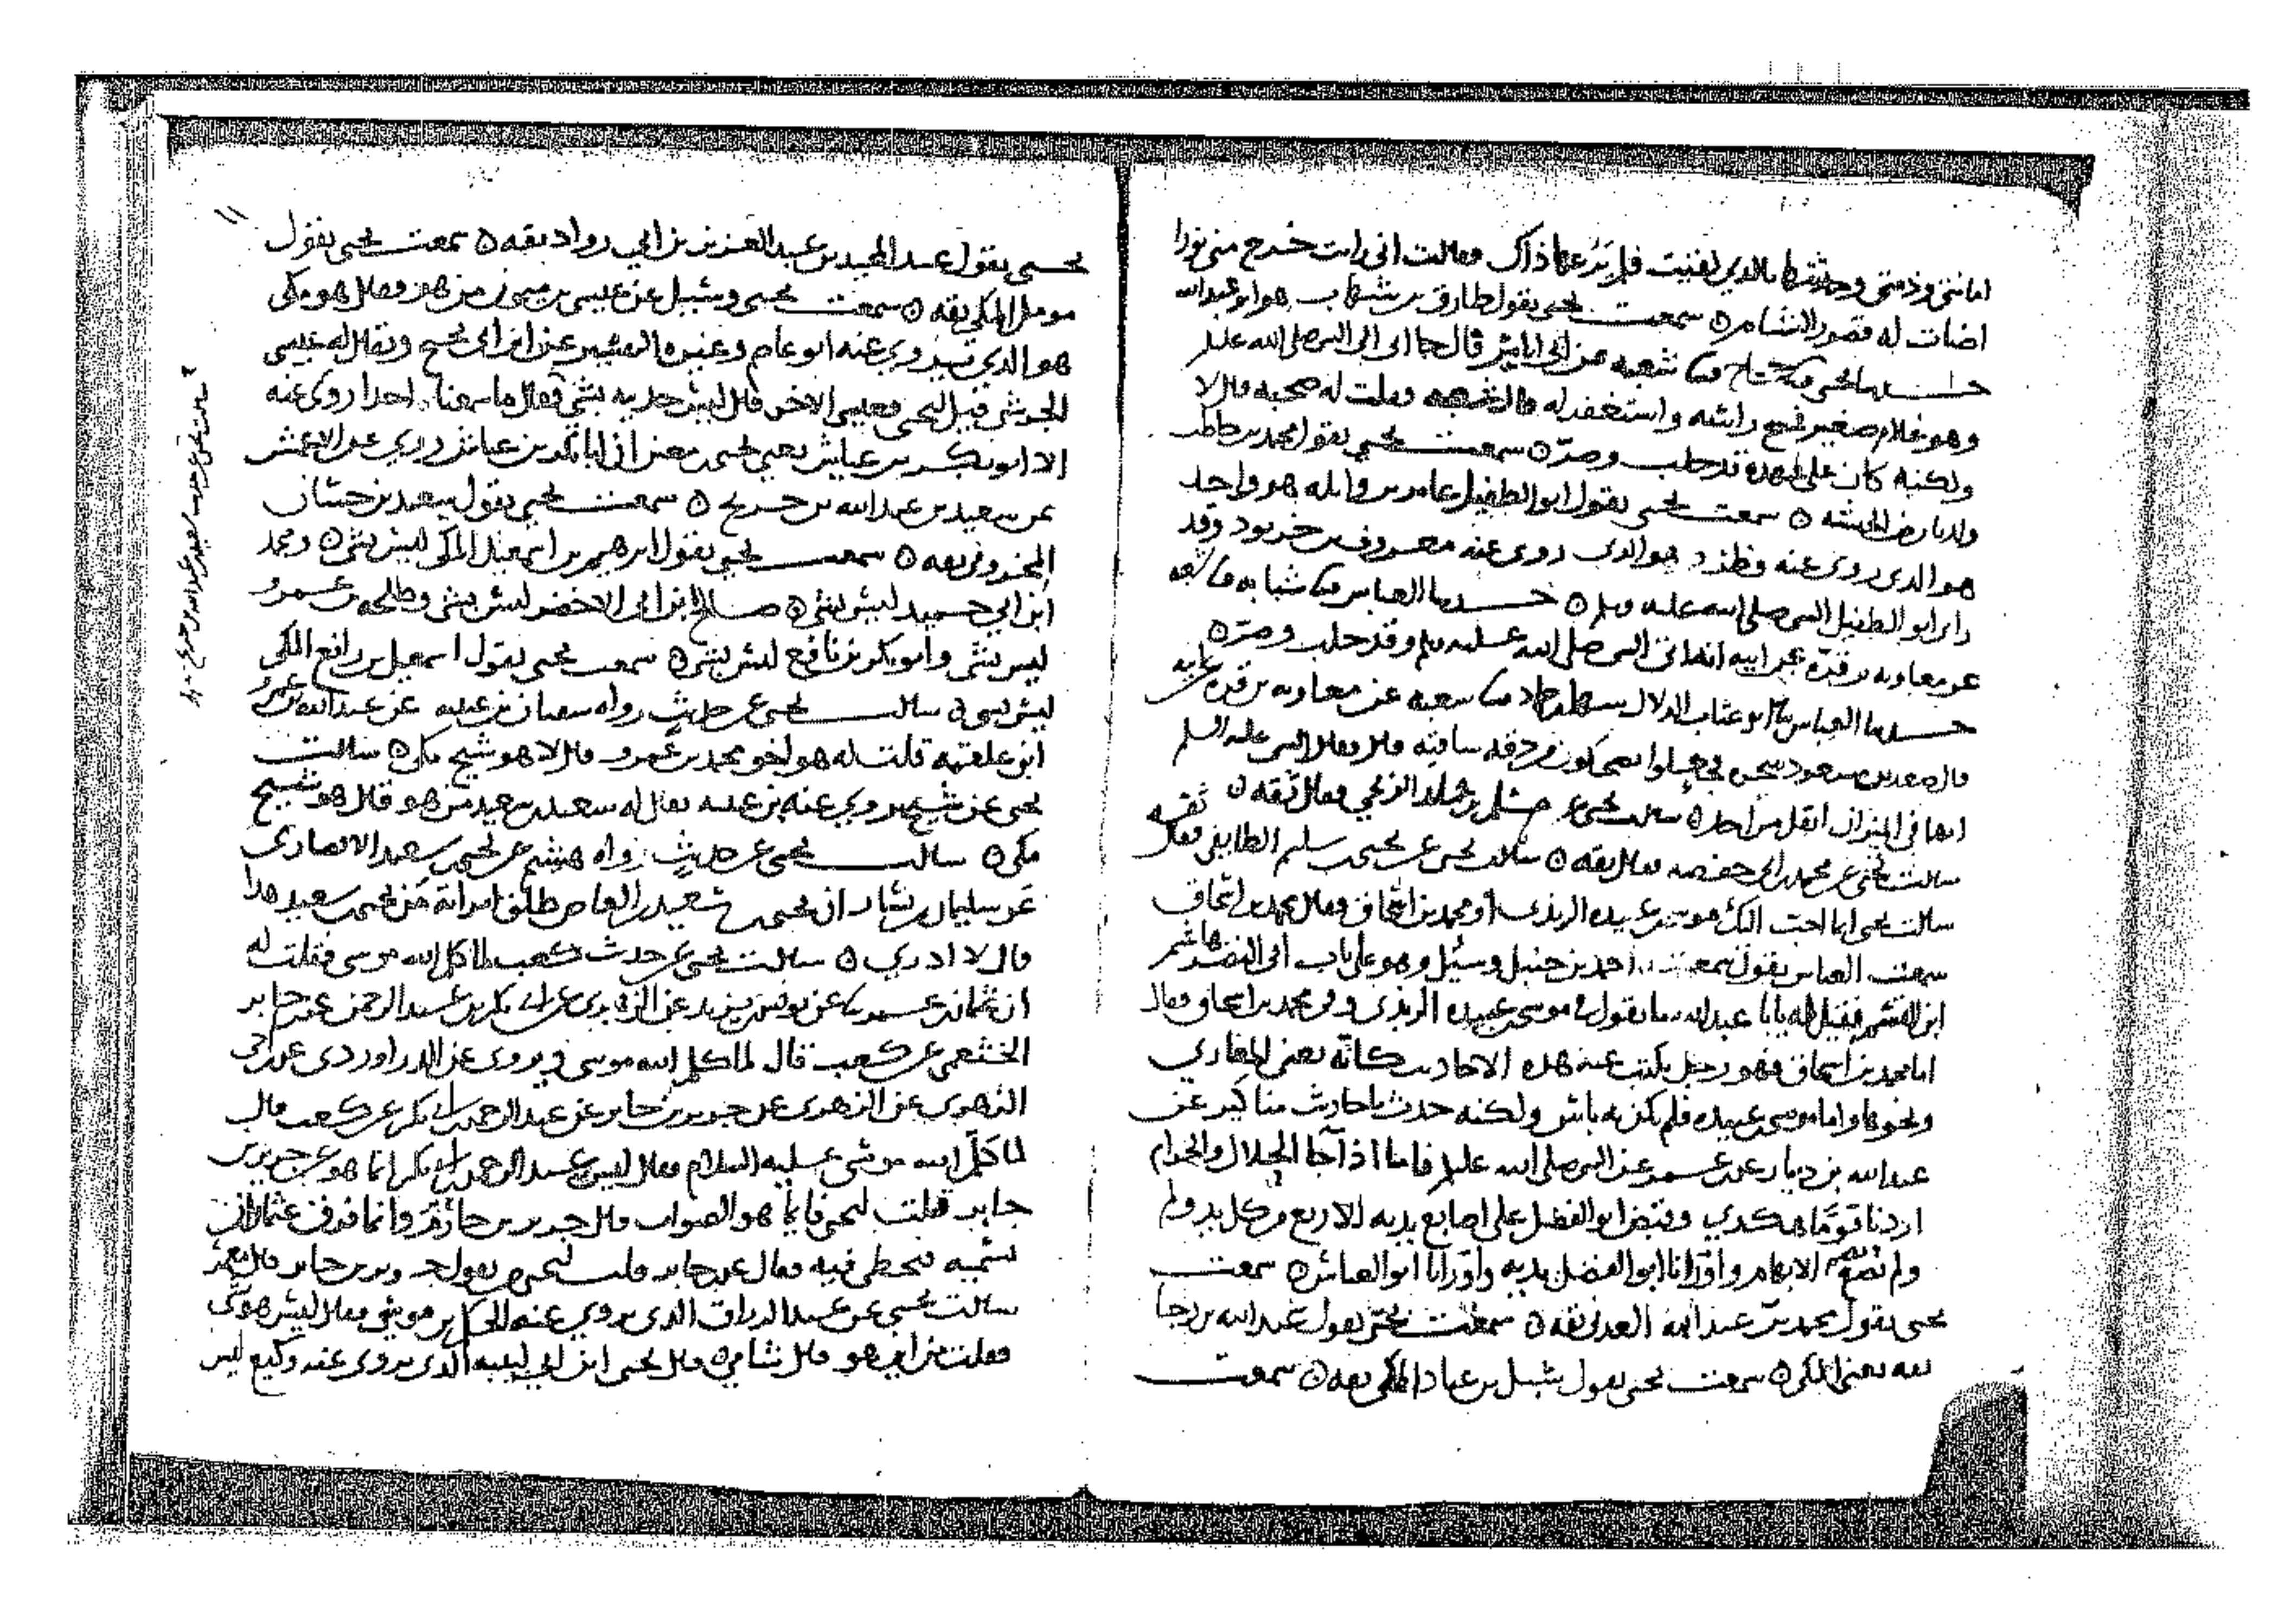 امانتي وذمتي وحدثتها بالذي لقيت فلم يرعها ذاك وقالت اني رايت خرج مني نورا
اضات له قصور الشام ٥ سمعت يحيى يقول طارق بن شهاب هو ابو عبدالله
حدثنا يحيى شعبه عن ابي اياس قال جا ابي الى النبي صلى الله عليه
وهو غلام صغير فمسح راسه واستغفر له قال شعبه وقلت له صحبه قال لا
ولكنه كان على عهده قد حلب وصر ٥ سمعت يحيى يقول محمد بن حاطب
ولد بارض الحبشه ٥ سمعت يحيى يقول ابو الطفيل عامر بن واثله هو واحد
هو الذي روى عنه فطر وهو الذي روى عنه معروف بن خربوذ وقد
راى ابو الطفيل النبي صلى الله عليه وسلم ٥ حدثنا العباس شبابه شعبه
عن معاويه بن قره عن ابيه انه اتى النبي صلى الله عليه وسلم وقد حلب وصر ٥
حدثنا العباس ابو عتاب الدلال سهل بن حماد شعبه عن معاويه بن قره عن ابيه
قال صعد بن مسعود شجره فجعلوا يضحكون من دقه ساقيه قال فقال النبي عليه السلم
انها في الميزان اثقل من احد ٥ سالت يحيى عن مسلم بن خالد الزنجي فقال ثقه ٥
سالت يحيى عن محمد بن ابي حفصه فقال ثقه ٥ سالت يحيى عن يحيى بن سليم الطايفي فقال ثقه
سالت يحيى ايما احب اليك موسى بن عبيده الربذي او محمد بن اسحاق فقال محمد بن اسحاق
سمعت العباس يقول سمعت احمد بن حنبل وسئل وهو على باب ابي النضر هاشم
ابن القسم فقيل له يابا عبدالله ما تقول في موسى بن عبيده الربذي وفي محمد بن اسحاق فقال
اما محمد بن اسحاق فهو رجل يكتب عنه هذه الاحاديث كانه يعني المغازي
ونحوها واما موسى بن عبيده فلم يكن به باس ولكنه حدث باحاديث مناكير عن
عبدالله بن دينار عن بن عمر عن النبي صلى الله عليه فاما اذا جا الحلال والحرام
اردنا قوما هكذي وقبض ابو الفضل على اصابع يديه الاربع من كل يد ولم
ولم يضم الابهام وارانا ابو الفضل يديه وارانا ابو العباس ٥ سمعت
يحيى يقول محمد بن عبدالله العدني ثقه ٥ سمعت يحيى يقول عبدالله بن رجا
ثقه يعني المكي ٥ سمعت يحيى يقول شبل بن عباد المكي ثقه ٥ سمعت
يحيى يقول عبد المجيد بن عبدالعزيز بن ابي رواد ثقه ٥ سمعت يحيى يقول
مومل المكي ثقه ٥ سمعت يحيى وسئل عن عيسى بن ميمون من هو فقال هو مكي
هو الذي يروي عنه ابو عاصم وغيره التفسير عن ابن ابي نجيح ويقال له عيسى
الجرشي قيل ليحيى فعيسى الاخر قال ليس حديثه بشي فقال ما سمعنا احدا روى عنه
الا ابو بكر بن عياش يعني يحيى بن معين ان ابا بكر بن عياش روى عن الاعمش
عن سعيد بن عبدالله بن جريج ٥ سمعت يحيى يقول سعيد بن حسان
المخزومي ثقه ٥ سمعت يحيى يقول ابرهيم بن اسمعيل المكي ليس بشي ٥ ومحمد
ابن ابي حميد ليس بشي ٥ صالح ابن ابي الاخضر ليس بشي وطلحه بن عمرو
ليس بشي وابو بكر بن نافع ليس بشي ٥ سمعت يحيى يقول اسمعيل بن رافع المكي
ليس بشي ٥ سالت يحيى عن حديث رواه سفيان بن عيينه عن عبدالله بن عمرو
ابن علقمه قلت له هو اخو محمد بن عمرو قال لا هو شيخ مكي ٥ سالت
يحيى عن شيخ يروي عنه بن عيينه يقال له سعيد بن سعيد من هو قال هو شيخ
مكي ٥ سالت يحيى عن حديث رواه هشيم عن يحيى بن سعيد الانصاري
عن سليمان بن يسار ان يحيى بن سعيد بن العاص طلق امراته من يحيى بن سعيد هذا
قال لا ادري ٥ سالت يحيى عن حديث كعب لما كلم الله موسى فقلت له
ان عثمان بن عمر عن يونس بن يزيد عن الزهري عن ابي بكر بن عبدالرحمن عن جابر
الخثعمي عن كعب قال لما كلم الله موسى ويروى عن الدراوردي عن اخي
الزهري عن الزهري عن جرير بن جابر عن عبدالرحمن بن ابي بكر عن كعب قال
لما كلم الله موسى عليه السلام فقال ليس عبدالرحمن بن ابي بكر انما هو عن جرير بن
جابر قلت ليحيى فايما هو الصواب قال جرير بن جابر وانما فرق عثمان ان
يسميه فيخطي فيه فقال عن جابر قلت ليحيى يقول جرير بن جابر قال نعم
سالت يحيى عن عبدالرزاق الذي يروي عنه الحكم بن موسى فقال ليس هو بشي
فقلت من اين هو قال شامي ٥ قال يحيى ابن ابي لبيبه الذي يروي عنه وكيع ليس
سالت يحيى عن حديث سعيد بن عبدالله بن جريج